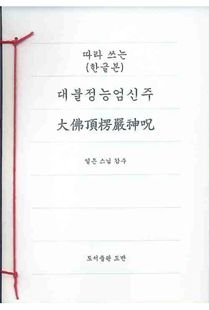 따라 쓰는
(한글본)
대불정능엄신주
大佛頂楞嚴神呪
일문 스님 감수
도서출판 도반